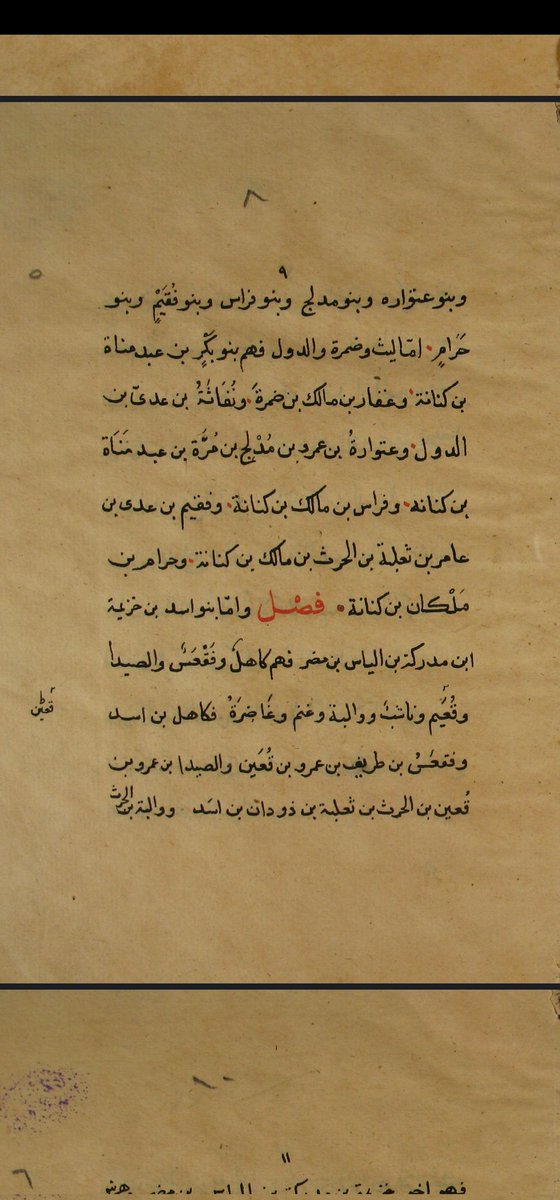 ٨
٩
٥
وبنو عتواره وبنو مدلج وبنو فراس وبنو فُقَيْمٍ وبنو
حَرَامٍ. امّا ليث وضمرة والدول فهم بنو بَكْرٍ بن عبد مناة
بن كنانة وغفار بن مالك بن ضمرةَ. ونُفَاثَةُ بن عدىّ بن
الدول. وعتوارةُ بن عمرو بن مُدْلِج بن مُرَّة بن عبد مَنَاة
بن كنانه. وفراس بن مالك بن كنانة. وفقيم بن عدى بن
عامر بن ثعلبة بن الحرث بن مالك بن كنانة. وحرام بن
مَلْكان بن كنانة. فصْل وامّا بنو اسد بن خزيمة
ابن مدركة بن الياس بن مضر فهم كاهلٌ وفَقْعَسٌ والصيدا
وقُعَيم وناشبٌ ووالبة وغنم وغَاضِرَةُ فكاهل بن اسد
قعين
وفقعسُ بن طريف بن عمرو بن قُعَين والصيدا بن عمرو بن
قُعين بن الحرث بن ثعلبة بن ذودان بن اسَد ووالبة بن الحرث
١٠
١١
٦